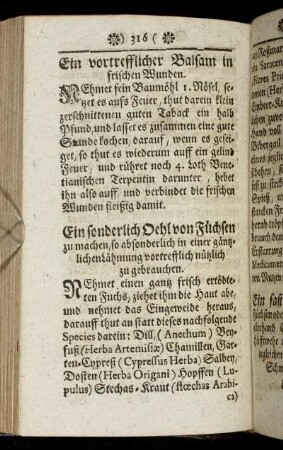 ) 316 (
Ein vortrefflicher Balsam in
frischen Wunden.
NEhmet fein Baumöhl 1. Rösel, se-
tzet es aufs Feuer, thut darein klein
zerschnittenen guten Taback ein halb
Pfund, und lasset es zusammen eine gute
Stunde kochen, darauf, wenn es gesei-
get, so thut es wiederum auff ein gelind
Feuer, und rühret noch 4. Loth Vene-
tianischen Terpentin darunter, hebet
ihn also auff, und verbindet die frischen
Wunden fleißig damit.
Ein sonderlich Oehl von Füchsen
zu machen, so absonderlich in einer gäntz-
lichen Lähmung vortrefflich nützlich
zu gebrauchen.
NEhmet einen gantz frisch ertödte-
ten Fuchs, ziehet ihm die Haut abe,
und nehmet das Eingeweide heraus,
darauff thut an statt dieses nachfolgende
Species darein: Dill, (Anethum) Bey-
fuß (Herba Artemisiæ) Chamillen, Gar-
ten-Cypreß (Cypressus Herba) Salbey,
Dosten (Herba Origani) Hopffen (Lu-
pulus) Stechas-Kraut (stœchas Arabi-
ca)